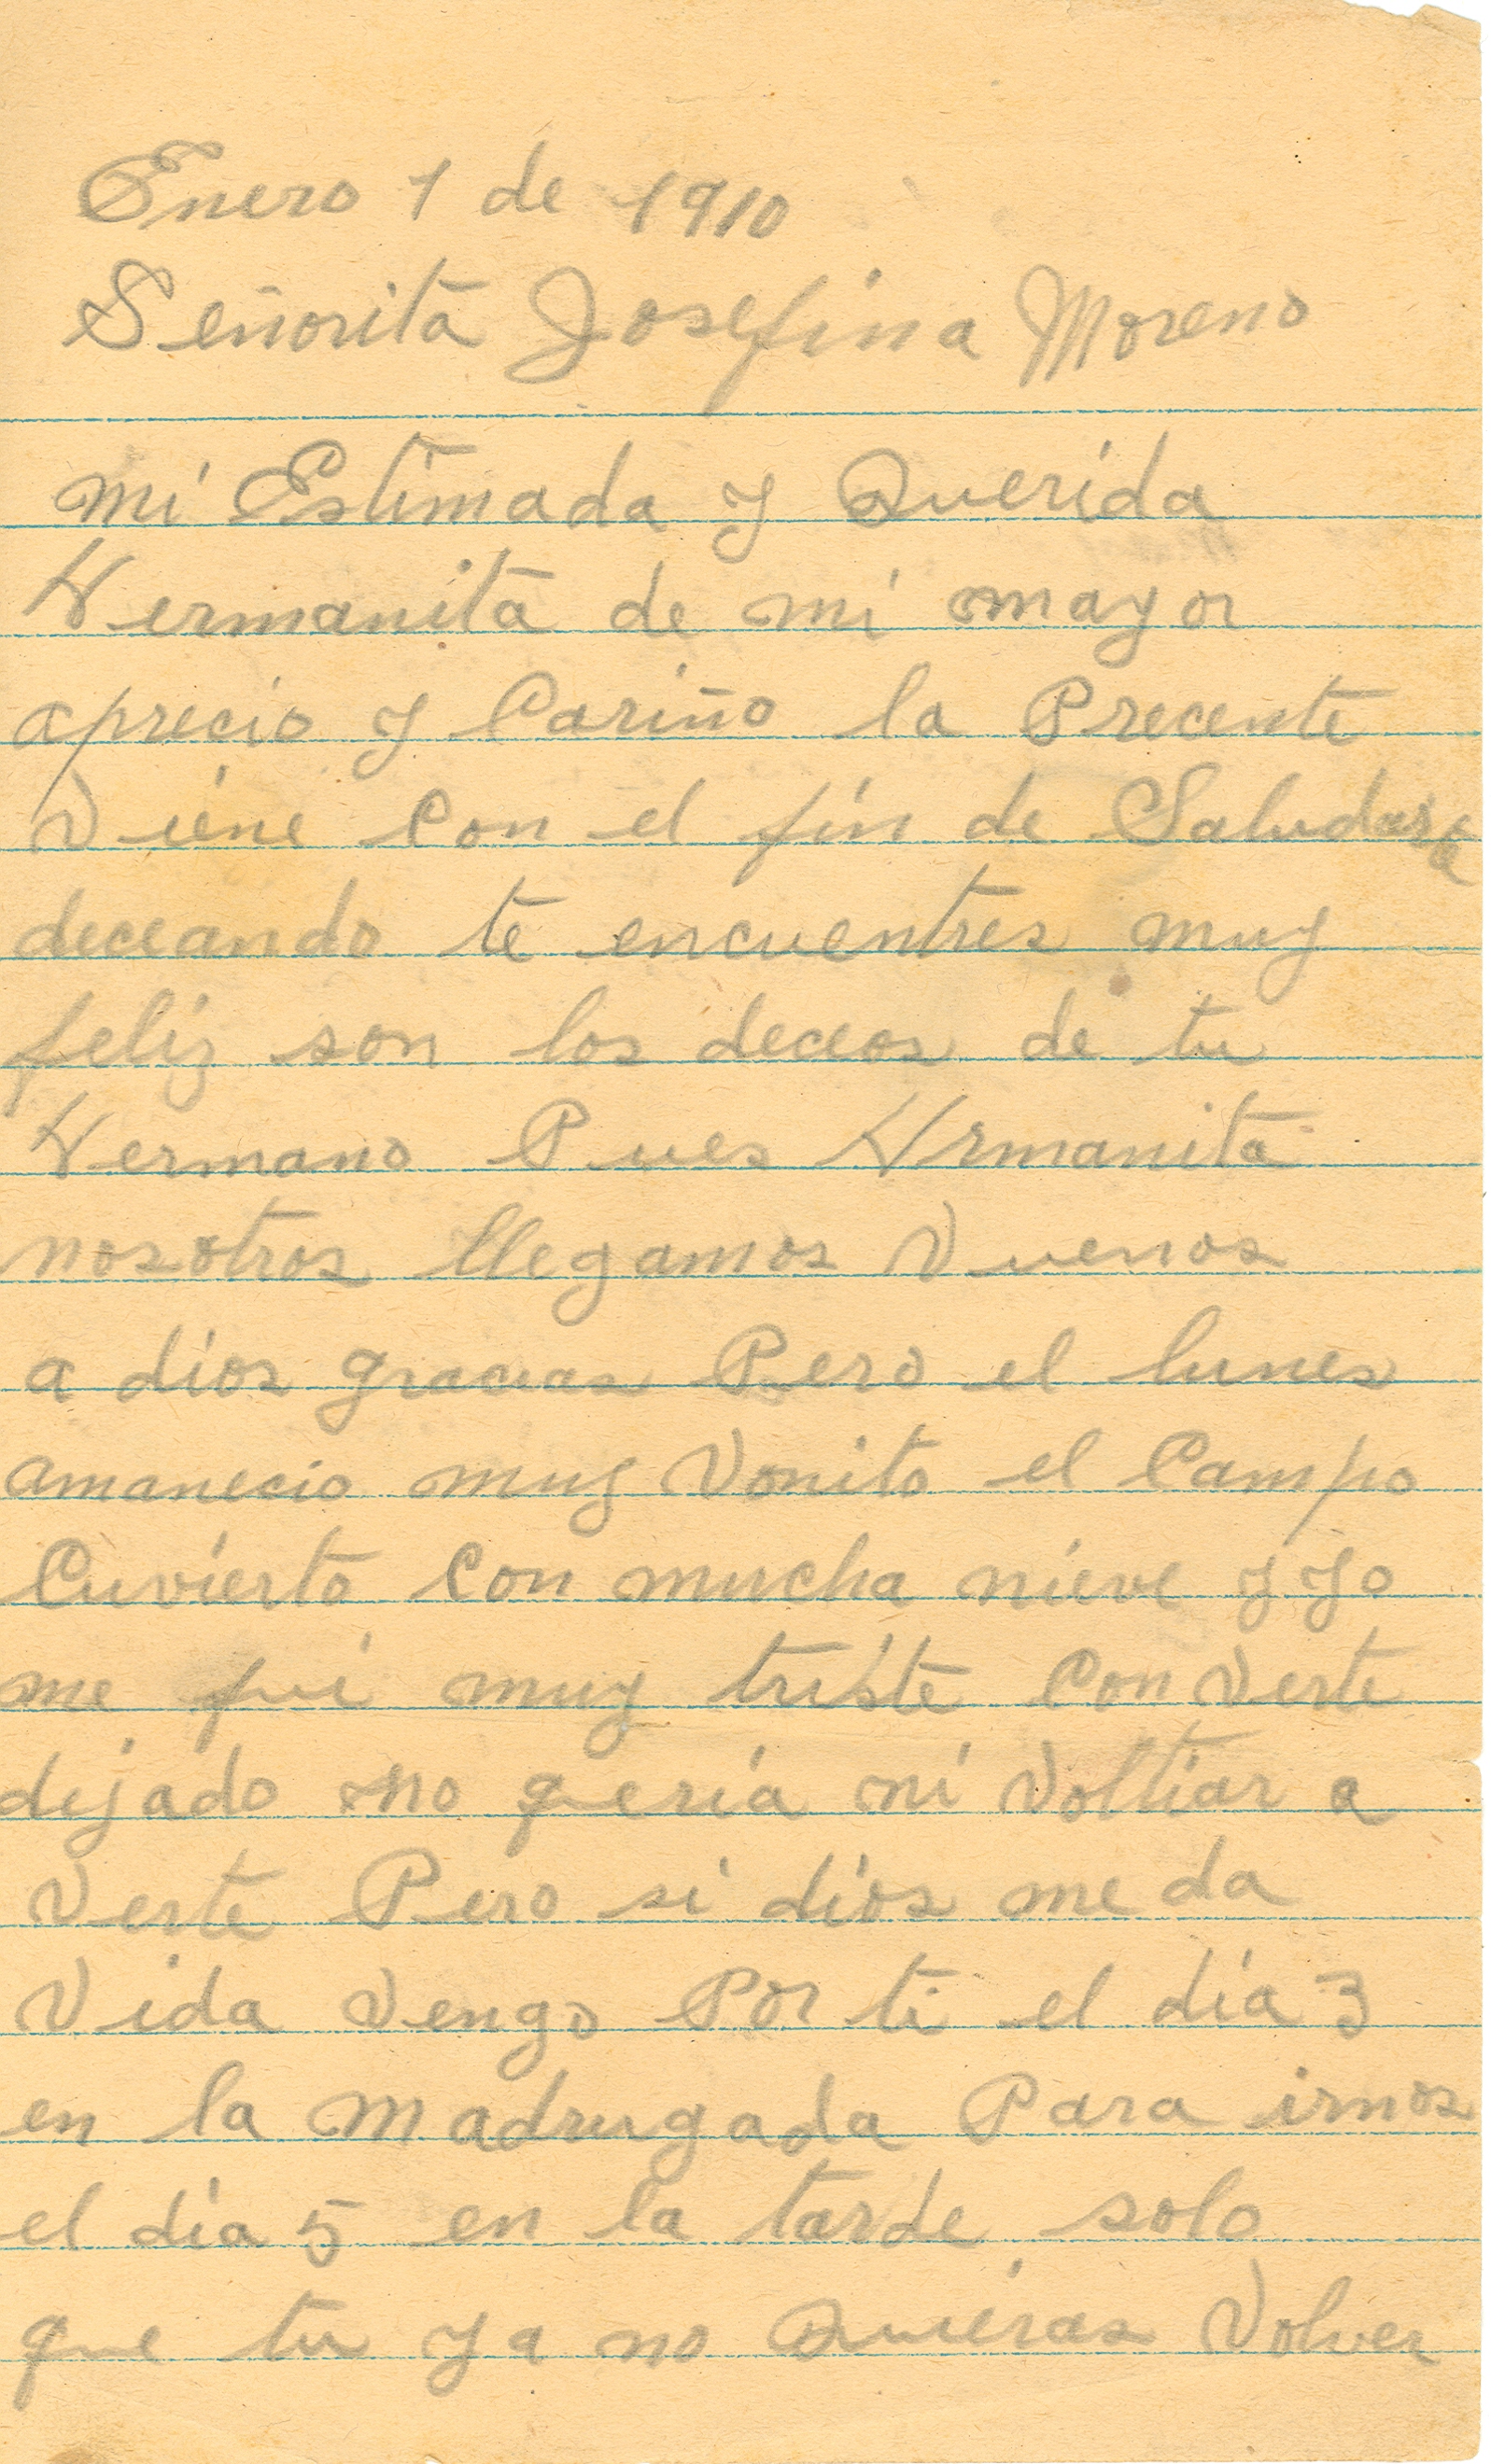 Enero 1 de 1910
Señorita Josefina Moreno
mi Estimada y Querida
Hermanita de mi mayor
aprecio y Cariño la Precente
Viene Con el fin de Saludarte
deceando te encuentres muy
feliz son los deceos de tu
Hermano Pues Hrmanita
nosotros llegamos Vuenos
a dios gracias Pero el lunes
amanecio muy Vonito el Campo
Cuvierto Con mucha nieve y yo
me fui muy triste Con Verte
dejado no queria ni Voltiar a
Verte Pero si dios me da
Vida Vengo Por ti el dia 3
en la Madrugada Para irnos
el dia 5 en la tarde solo
que tu ya no Quieras Volver